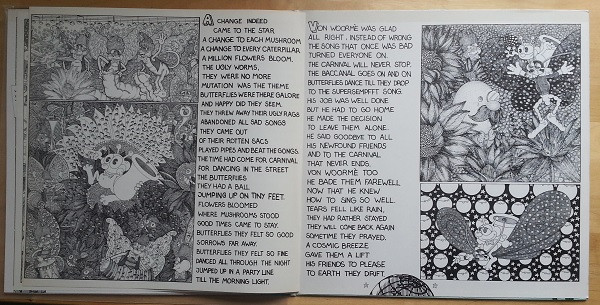 A CHANGE INDEED
CAME TO THE STAR
A CHANGE TO EACH MUSHROOM
A CHANGE TO EVERY CATERPILLAR.
A MILLION FLOWERS BLOOM.
THE UGLY WORMS,
THEY WERE NO MORE
MUTATION WAS THE THEME
BUTTERFLIES WERE THERE GALORE
AND HAPPY DID THEY SEEM.
THEY THREW AWAY THEIR UGLY RAGS
ABANDONED ALL SAD SONGS
THEY CAME OUT
OF THEIR ROTTEN SACS
PLAYED PIPES AND BEAT THE GONGS.
THE TIME HAD COME FOR CARNIVAL
FOR DANCING IN THE STREET
THE BUTTERFLIES
THEY HAD A BALL
JUMPING UP ON TINY FEET.
FLOWERS BLOOMED
WHERE MUSHROOMS STOOD
GOOD TIMES CAME TO STAY.
BUTTERFLIES THEY FELT SO GOOD
SORROWS FAR AWAY.
BUTTERFLIES THEY FELT SO FINE
DANCED ALL THROUGH THE NIGHT
JUMPED UP IN A PARTY LINE
TILL THE MORNING LIGHT.
VON WOORMË WAS GLAD
ALL RIGHT. INSTEAD OF WRONG
THE SONG THAT ONCE WAS BAD
TURNED EVERYONE ON.
THE CARNIVAL WILL NEVER STOP.
THE BACCANAL GOES ON AND ON
BUTTERFLIES DANCE TILL THEY DROP
TO THE SUPERSEMPFFT SONG.
HIS JOB WAS WELL DONE
BUT HE HAD TO GO HOME
HE MADE THE DECISION
TO LEAVE THEM ALONE.
HE SAID GOODBYE TO ALL
HIS NEWFOUND FRIENDS
AND TO THE CARNIVAL
THAT NEVER ENDS.
VON WOORMË TOO
HE BADE THEM FAREWELL
NOW THAT HE KNEW
HOW TO SING SO WELL
TEARS FELL LIKE RAIN,
THEY HAD RATHER STAYED
THEY WILL COME BACK AGAIN
SOMETIME THEY PRAYED.
A COSMIC BREEZE
GAVE THEM A LIFT
HIS FRIENDS TO PLEASE
TO EARTH THEY DRIFT.